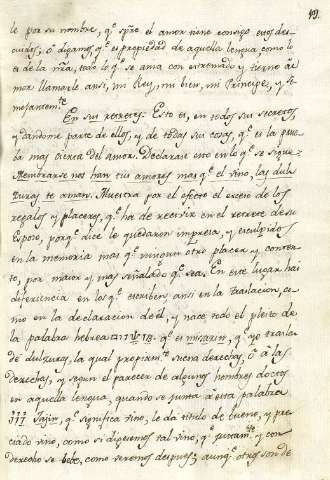 49.
le por su nombre, q̃ spre el amor tiene consigo estos des-
cuidos; ó digamos, q̃ es propiedad de aquella lengua, como lo
es de la ñra, todo lo q̃ se ama con estremado y tierno a-
mor llamarle ansi, mi Rey, mi bien, mi Principe, y se-
mejantemte.
En sus retretes. Esto es, en todos sus secretos,
y dandome parte de ellos, y de todas sus cosas, q̃ es la prue-
ba mas cierta del amor. Declarase esto en lo q̃ se sigue.
Membrarse nos han tus amores mas q̃ el vino, las dul-
zuras te aman. Muestra por el efecto el exceso de los
regalos y placeres, q̃ ha de recevir en el retrete de su
Esposo, porq̃ dice le quedaron impresa, y esculpidos
en la memoria mas q̃ ningun otro placer y conten-
to, por maior y mas señalado q̃ sea. En este lugar hai
diferiencia en los q̃ escriben, ansi en la traslacion, co-
mo en la declaracion de él, y nace todo el pleito de
la palabra hebrea q̃ es misarin, q̃ yo trasla-
dé dulzuras, la qual propiamte suena derechos, ó á las
derechas, y segun el parecer de algunos hombres doctos
en aquella lengua, quando se junta á esta palabra
Jajin, q̃ significa vino, le da titulo de bueno, y pre-
ciado vino, como si digesemos tal vino, q̃ justamte y con
derecho se bebe, como veremos despues; aunq̃ otros son de